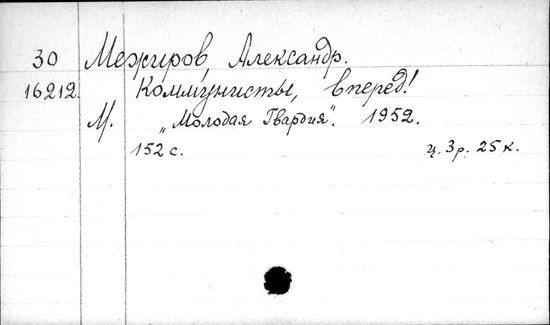 30 Межиров, Александр.
16212. Коммунисты, вперед!
М. „Молодая Гвардия". 1952.
152 с. ц. 3 р. 25 к.